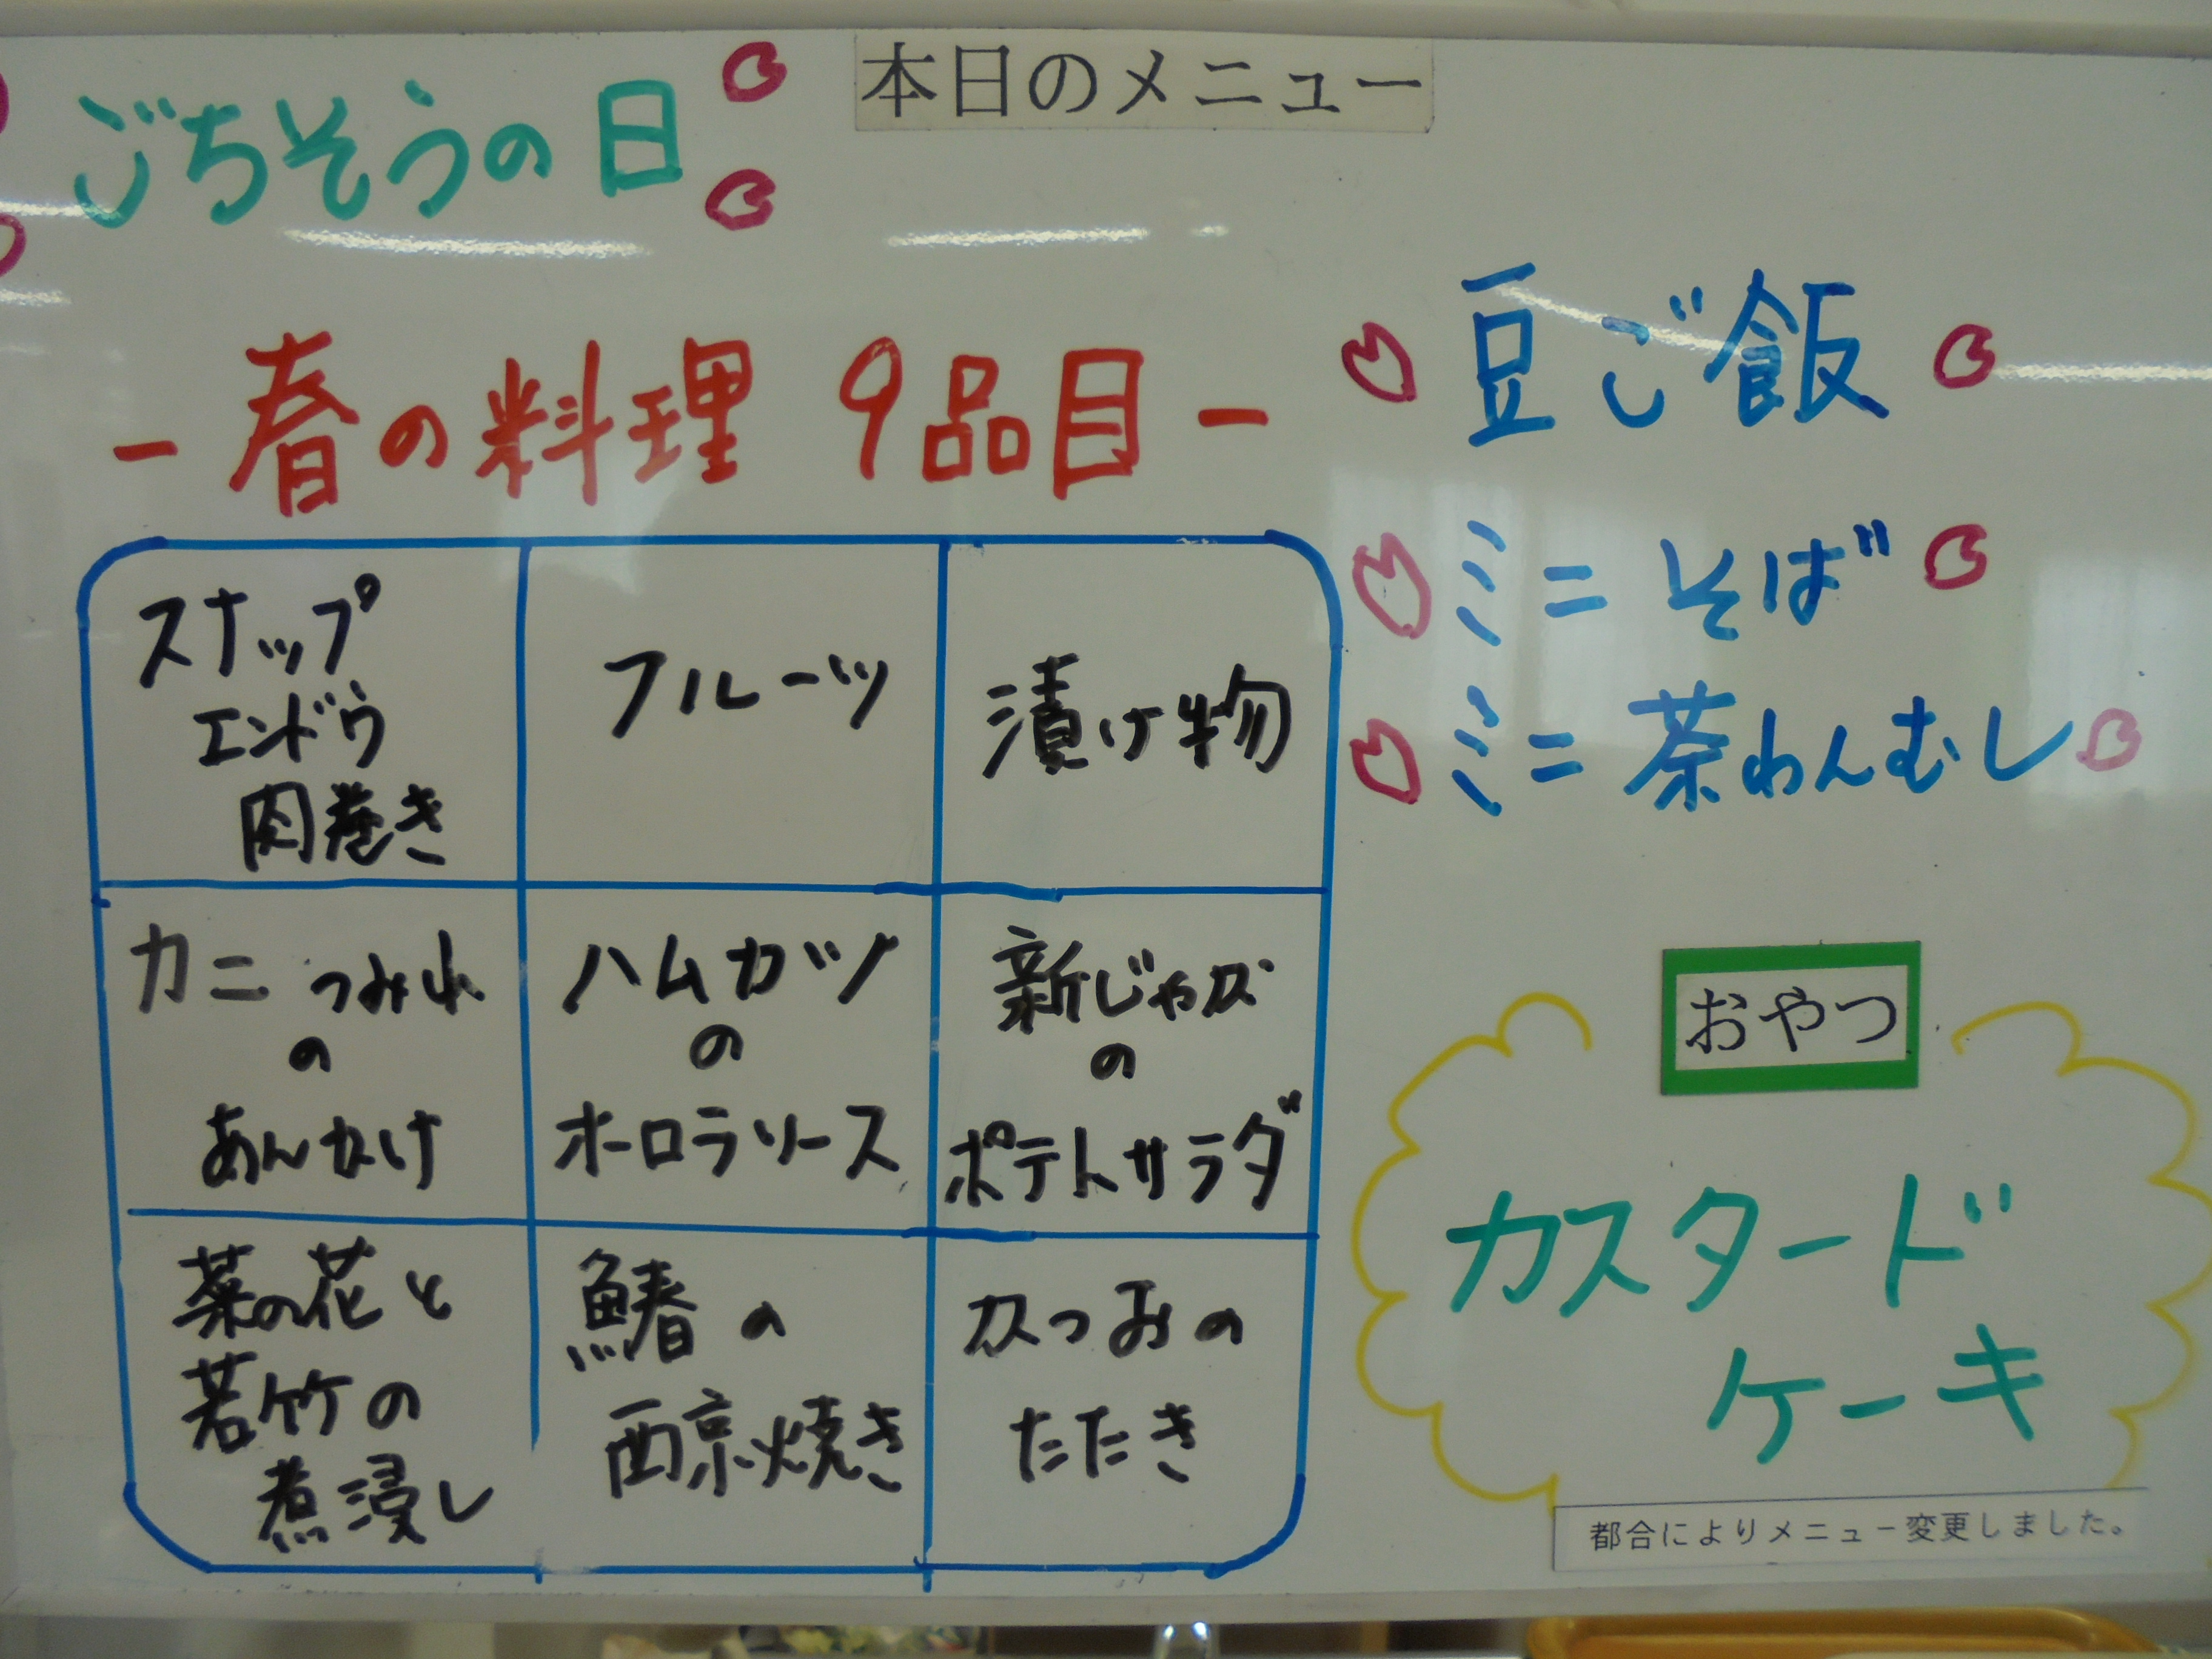 本日のメニュー
ごちそうの日
－春の料理 9品目－
スナップ
エンドウ
肉巻き
フルーツ
漬け物
カニつみれ
の
あんかけ
ハムカツ
の
オーロラソース
新じゃが
の
ポテトサラダ
菜の花と
若竹の
煮浸し
鰆の
西京焼き
かつおの
たたき
豆ご飯
ミニそば
ミニ茶わんむし
おやつ
カスタード
ケーキ
都合によりメニュー変更しました。